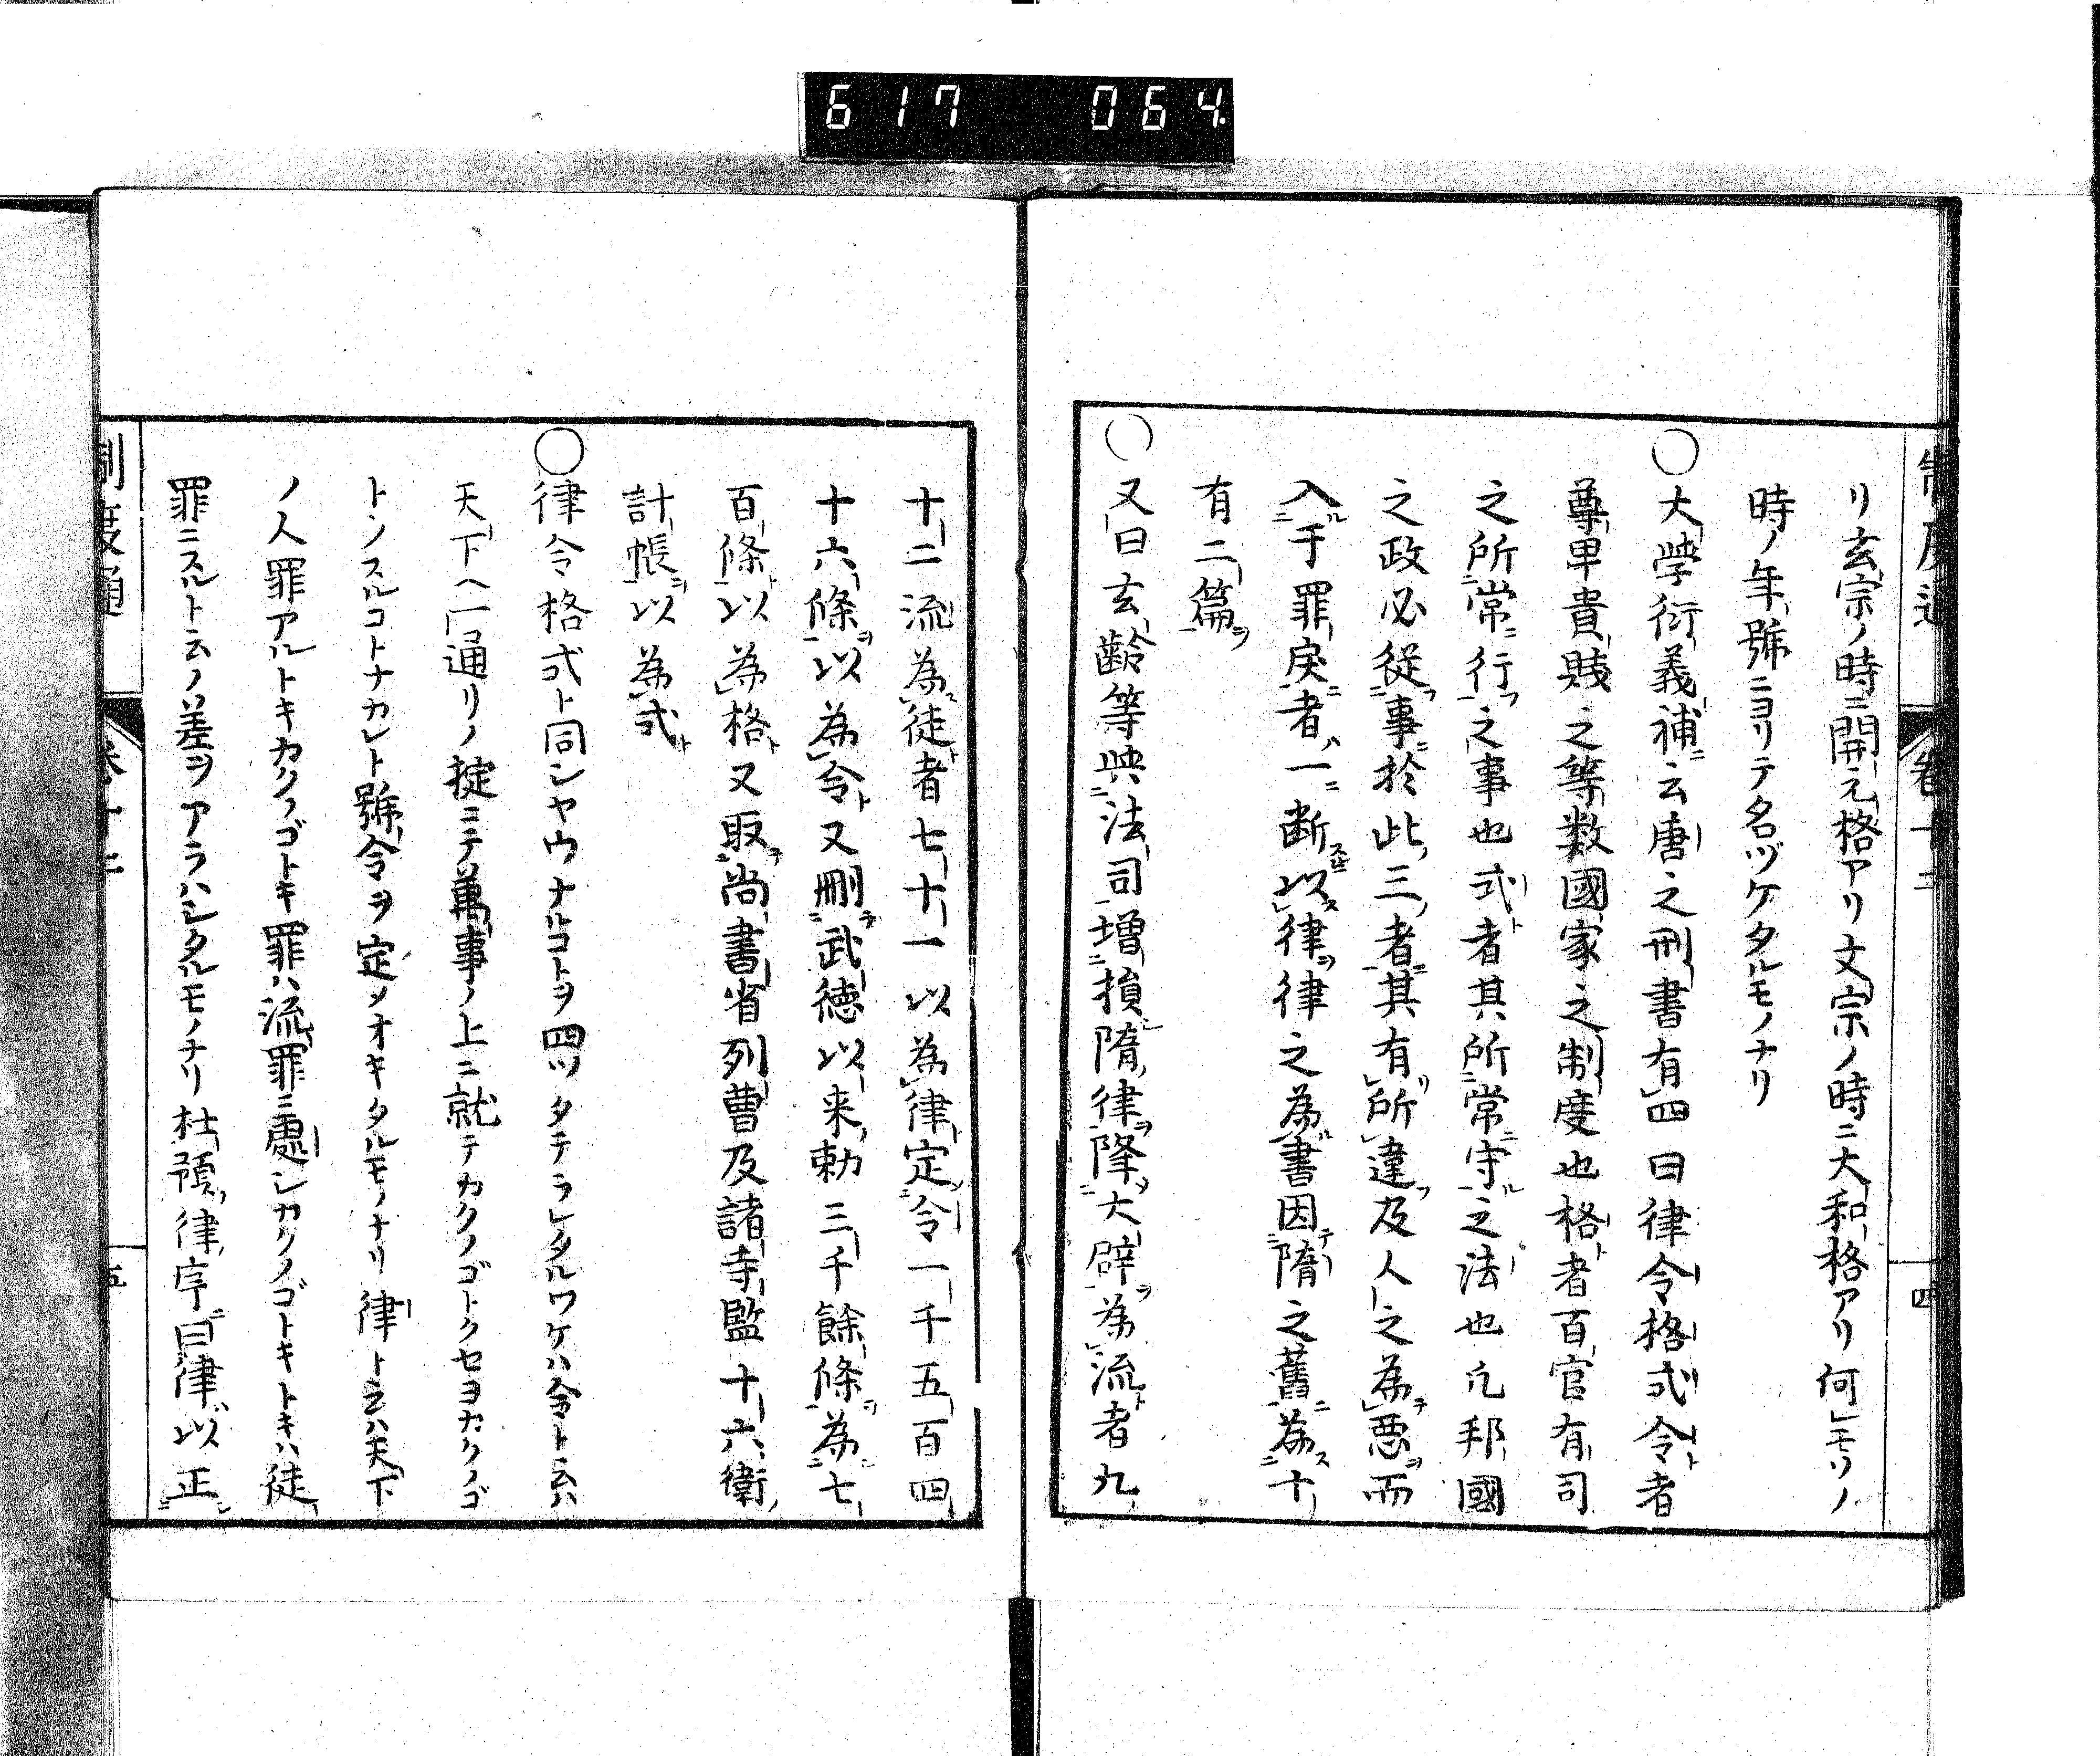 617 064
制度通 卷十二 四
リ玄宗ノ時ニ開元格アリ文宗ノ時ニ大和格アリ何レモソノ
時ノ年號ニヨリテ名ヅケタルモノナリ
〇大學衍義補ニ云唐之刑書有四曰律令格式令者
尊卑貴賤之等数國家之制度也格者百官有司
之所常行之事也式者其所常守之法也凢邦國
之政必從事於此三者其有所違及人之為悪而
入于罪戻者一断以律律之為書因隋之舊為十
有二篇
〇又曰玄齢等與法司増損隋律降大辟為流者九
十二流為徒者七十一以為律定令一千五百四
十六條以為令又刪武徳以来勅三千餘條為七
百條以為格又取尚書省列曹及諸寺監十六衛
計帳以為式
〇律令格式ト同シヤウナルコトヲ四ツタテラレタルワケハ令ト云ハ
天下ヘ一通リノ掟ニテ萬事ノ上ニ就テカクノゴトクセヨカクノゴ
トンスルコトナカレト號令ヲ定メオキタルモノナリ律ト云ハ天下
ノ人罪アルトキカクノゴトキ罪ハ流罪ニ處シカクノゴトキトキハ徒
罪ニスルト云ノ差ヲアラハシタルモノナリ杜預律序曰律以正
制度通 卷十二 五